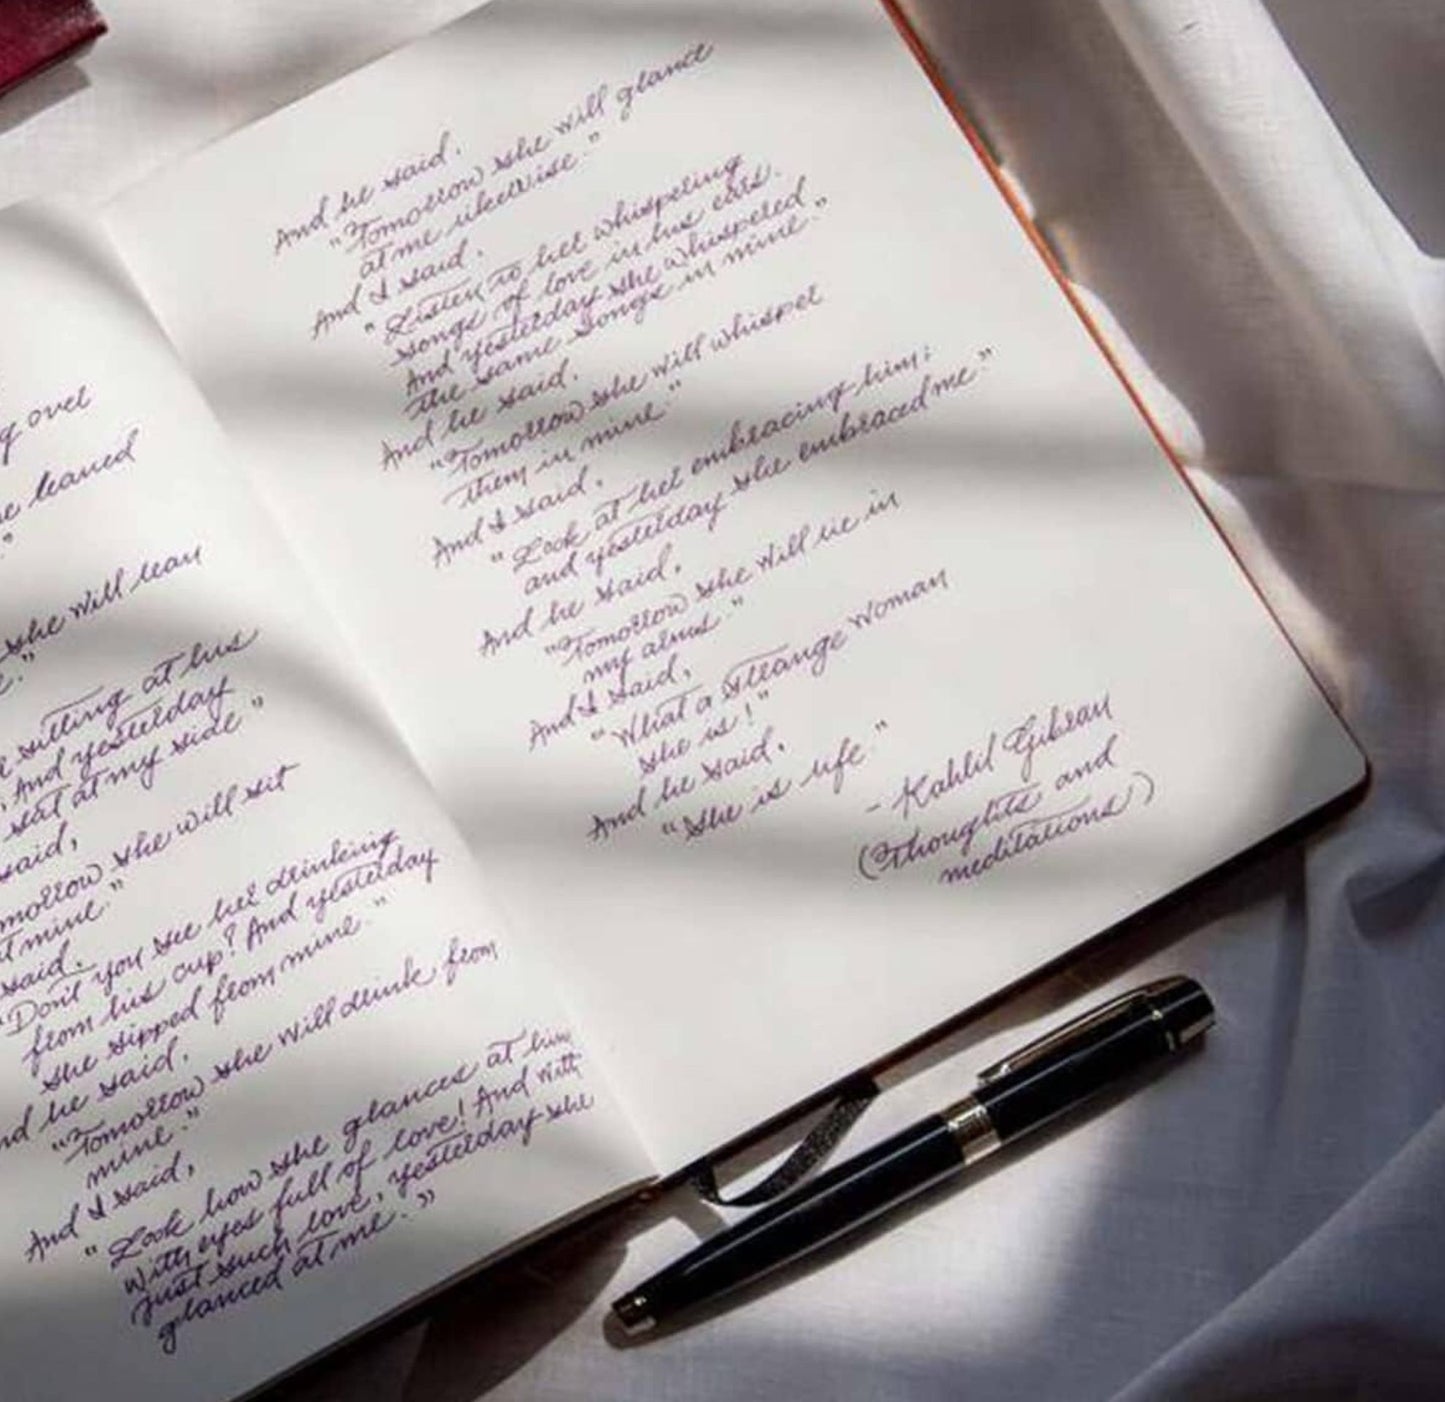 g over
leaned
."
she will lean
."
sitting at his
, And yesterday
sat at my side."
said,
morrow she will sit
at mine."
said.
"Don't you see her drinking
from his cup? And yesterday
she sipped from mine."
nd he said.
"Tomorrow she will drink from
mine."
And I said,
"Look how she glances at him
with eyes full of love! And with
just such love, yesterday she
glanced at me."
And he said.
"Tomorrow she will glance
at me likewise."
And I said.
"Listen to her whispering
songs of love in his ears.
And yesterday she whispered
the same songs in mine."
And he said.
"Tomorrow she will whisper
them in mine."
And I said,
"Look at her embracing him;
and yesterday she embraced me."
And he said,
"Tomorrow she will lie in
my arms"
And I said,
"What a strange woman
she is!"
And he said,
"she is life."
- Kahlil Gibran
(Thoughts and
meditations)